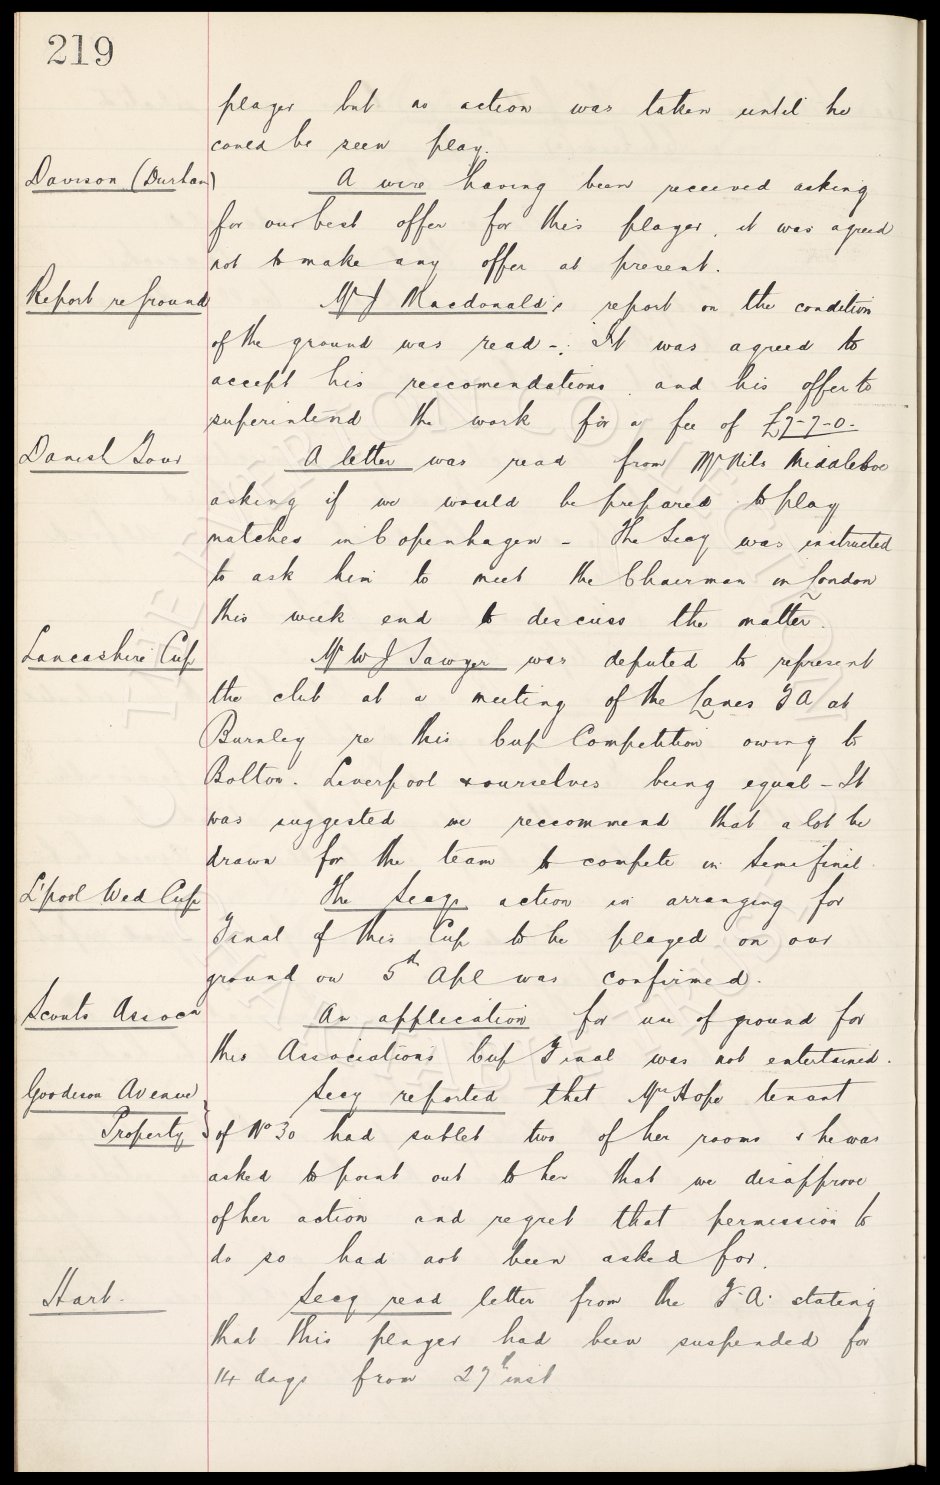 219
player but no action was taken until he
could be seen play.
Davison (Durham)
A wire having been received asking
for our best offer for this player, it was agreed
not to make any offer at present.
Report re ground
Mr J Macdonald's report on the condition
of the ground was read -: It was agreed to
accept his reccomendations and his offer to
superintend the work for a fee of £7-7-0-
Danish Tour
A letter was read from Mr Nils Middleboe
asking if we would be prepared to play
matches in Copenhagen - The Secy was instructed
to ask him to meet the Chairman in London
this week end to discuss the matter.
Lancashire Cup
Mr W J Sawyer was deputed to represent
the club at a meeting of the Lancs F A at
Burnley re this Cup Competition owing to
Bolton. Liverpool & ourselves being equal - It
was suggested we reccommend that a lot be
drawn for the team to compete in Semi final.
L'pool Wed Cup
The Secys action in arranging for
Final of this Cup to be played on our
ground on 5th Apl was confirmed.
Scouts Assocn
An application for use of ground for
this Associations Cup Final was not entertained.
Goodison Avenue
Property
Secy reported that Mrs Hope tenant
of No 30 had sublet two of her rooms & he was
asked to point out to her that we disapprove
of her action and regret that permission to
do so had not been asked for.
Hart.
Secy read letter from the F.A. stating
that this player had been suspended for
14 days from 27th inst